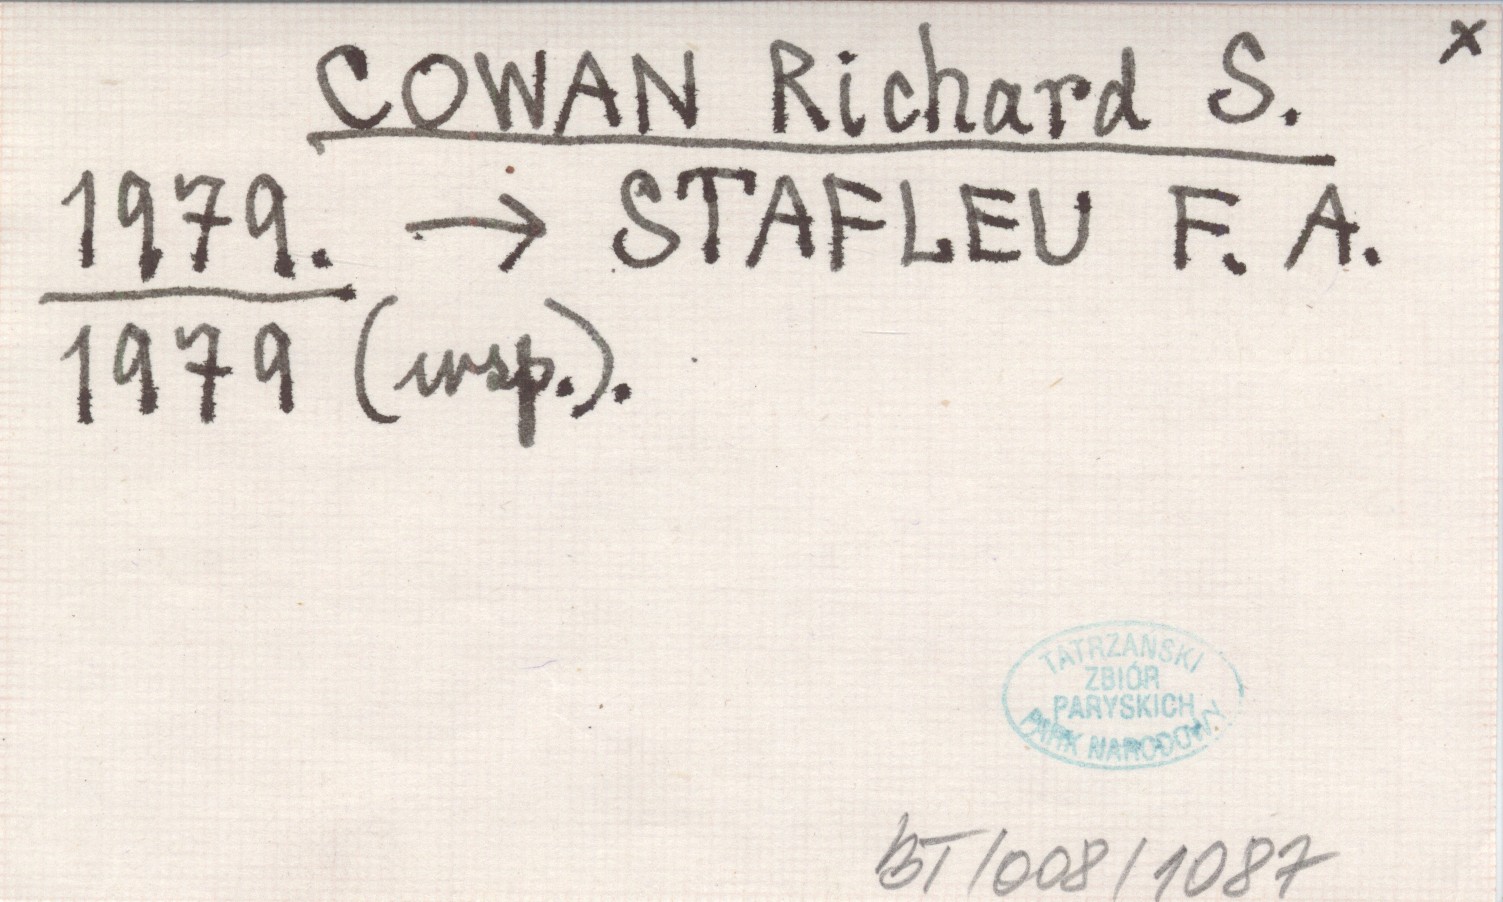 COWAN Richard S.
x
1979. → STAFLEU F. A.
1979 (wsp.).
TATRZAŃSKI
ZBIÓR
PARYSKICH
PARK NARODOWY
BT/008/1087